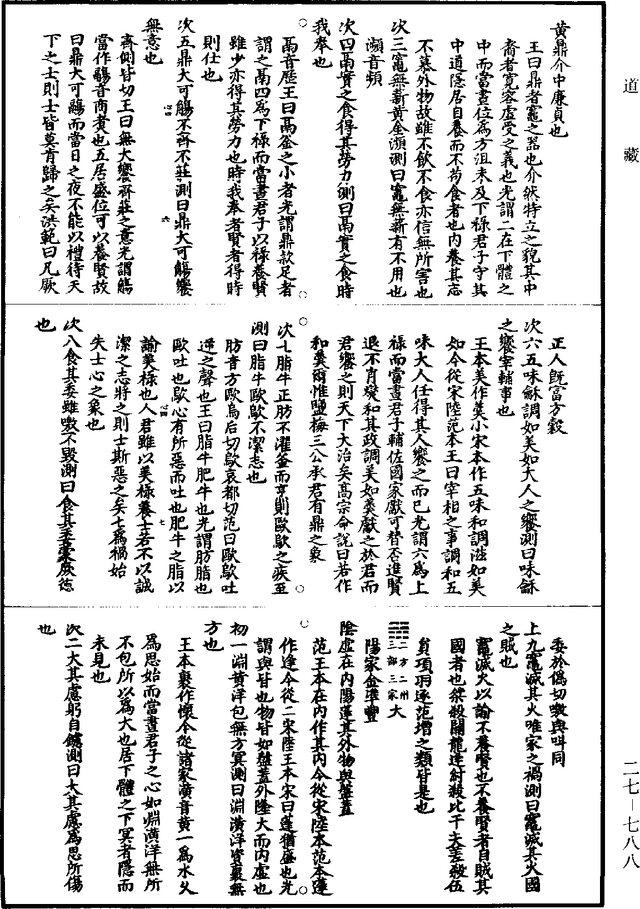 道藏
黃鼎介中廉貞也
王曰鼎者竈之器也介然特立之貌其中
裔者寬容虛受之義也光謂二在下體之
中而當晝位為方沮未及下祿君子守其
中道隱居自養而不苟食者也内養其志
不慕外物故雖不飲不食亦信無所害也
次三竈無薪黃金瀕測曰竈無薪有不用也
瀕音頻
次四鬲實之食得其勞力測曰鬲實之食時
我奉也
鬲音歷王曰鬲釜之小者光謂鼎款足者
謂之鬲四為下祿而當晝君子以祿養賢
雖少亦得其勞力也時我奉者賢者得時
則仕也
次五鼎大可觴不齊不莊測曰鼎大可觴饗
無意也
齊側皆切王曰無大饗齊莊之意光謂觴
當作鬺音商煮也五居盛位可以養賢故
曰鼎大可鬺而當日之夜不能以禮待天
下之士則士皆莫肯歸之矣洪範曰凡厥
正人既富方穀
次六五味龢調如美如大人之饗測曰味龢
之饗宰輔事也
王本美作羹小宋本作五味和調滋如美
如今從宋陸范本王曰宰相之事調和五
味大人任得其人饗之而已光謂六為上
祿而當晝君子輔佐國家獻可替否進賢
退不肖礙和其政調美如羹獻之於君而
君饗之則天下大治矣高宗命說曰若作
和羹爾惟鹽梅三公承君有鼎之象
次七脂牛正肪不濯釜而亨則歐歍之疾至
測曰脂牛歐歍不潔志也
肪音方歐烏后切歍哀都切范曰歐歍吐
逆之聲也王曰脂牛肥牛也光謂肪脂也
歐吐也歍心有所惡而吐也肥牛之脂以
諭美祿也人君雖以美祿養士若不以誠
潔之志將之則士斯惡之矣七為禍始
失士心之象也
次八食其委雖噭不毀測曰食其委蒙厥德
也
委於偽切噭與叫同
上九竈滅其火唯家之禍測曰竈滅其火國
之賊也
竈滅火以諭不養賢也不養賢者自賊其
國者也桀殺關龍逄紂殺比干夫差殺伍
貟項羽逐范增之類皆是也
二方二州三部三家大
陽家金準豐
陰虛在内陽蓬其外物與盤蓋
范王本在内作其内今從宋陸本范本蓬
作逢今從二宋陸王本宋曰蓬猶盛也光
謂與皆也物皆如盤蓋外隆大而内虛也
初一淵潢洋包無方冥測曰淵潢洋資裹無
方也
王本裹作懷今從諸家潢音黃一為水又
為思始而當晝君子之心如淵潢洋無所
不包所以為大也居下體之下冥者隱而
未見也
次二大其慮躬自鑢測曰大其慮為思所傷
也
二七—七八八